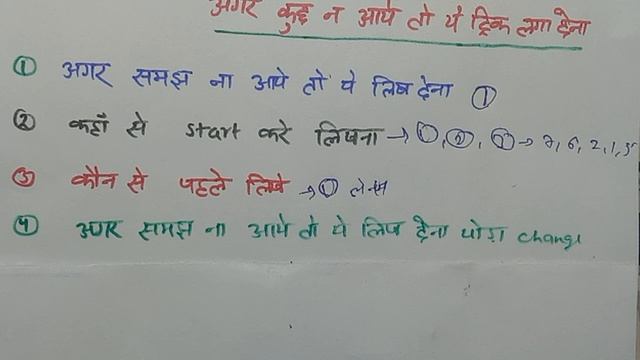 अगर कुछ न आये तो ये ट्रिक लगा देना
① अगर समझ ना आये तो ये लिख देना ①
② कहाँ से start करे लिखना → ①, ②, ③ → 7, 6, 2, 1, 5
③ कौन से पहले लिखे → ① लेन्स
④ अगर समझ ना आये तो ये लिख देना थोड़ा change